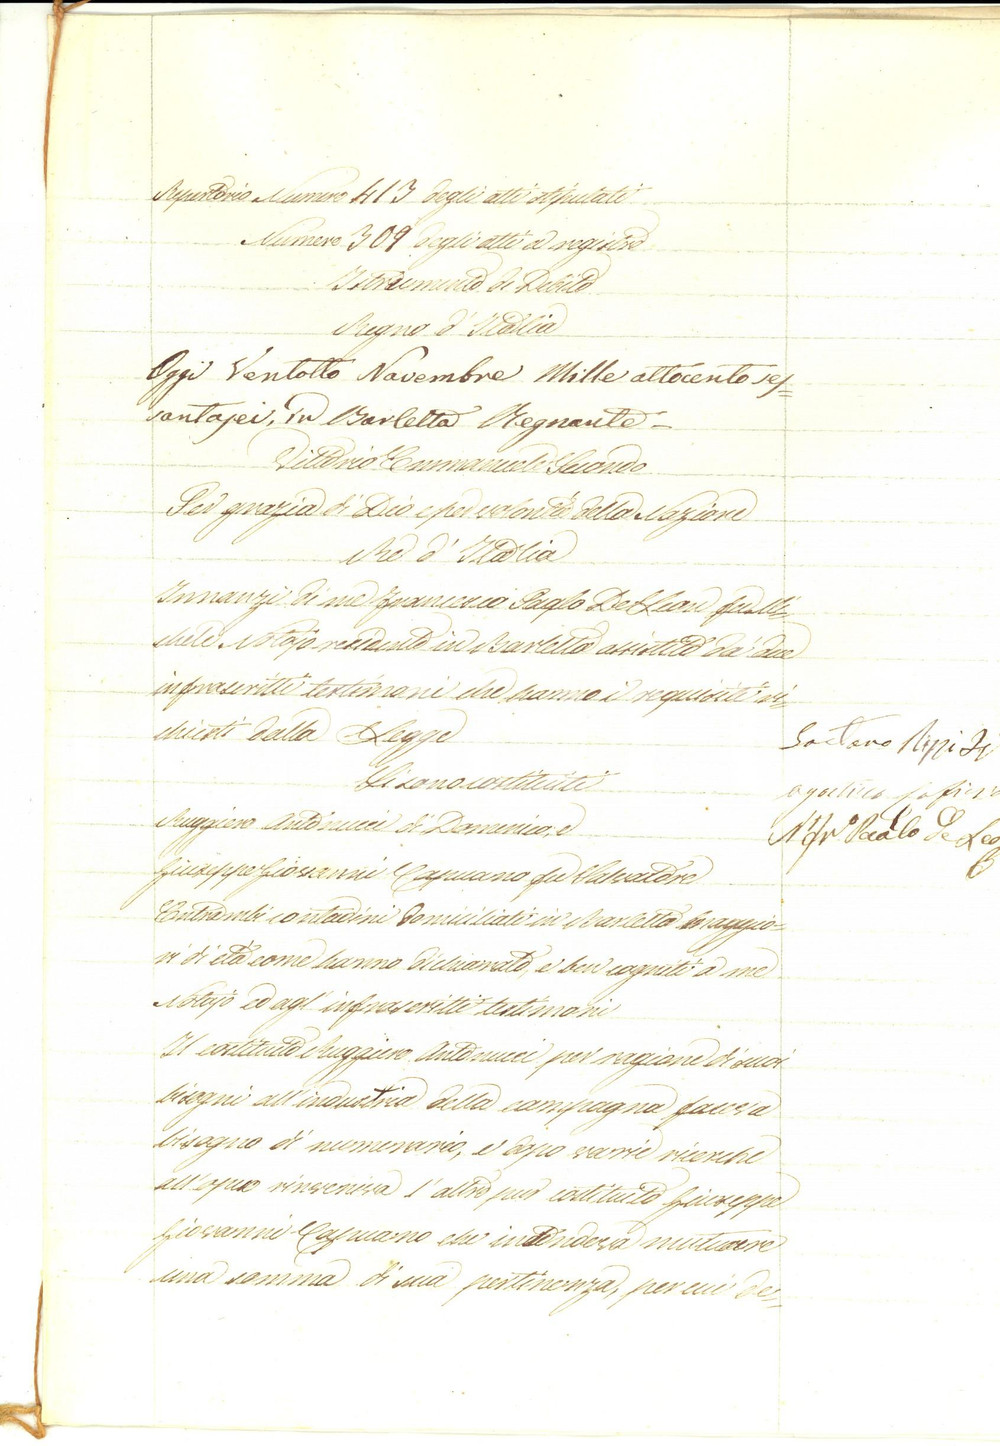 Repertorio Numero 413 degli atti stipulati
Numero 309 degli atti a registro
Istrumento di Debito
Regno d'Italia
Oggi Ventotto Novembre Mille ottocento ses=
santasei, in Barletta Regnante _
Vittorio Emmanuele Secondo
Per grazia di Dio e per volontà della Nazione
Re d'Italia
Innanzi di me Francesco Paolo De Leon fu Mi=
chele Notajo residente in Barletta assistito da' due
infrascritti testimoni che hanno i requisiti ri=
chiesti dalla Legge
Si sono costituiti
Ruggiero Antonucci di Domenico, e
Giuseppe Giovanni Capuano fu Salvatore
Entrambi contadini domiciliati in Barletta maggio=
ri di età come hanno dichiarato, e ben cogniti a me
Notajo ed agl'infrascritti testimoni
Il costituito Ruggiero Antonucci per ragione di suoi
bisogni all'industria della campagna faceva
bisogno di numerario, e dopo varie ricerche
all'opera rinveniva l'altro pur costituito Giuseppe
Giovanni Capuano che intendeva mutuare
una somma di sua pertinenza, per cui de=
Gaetano Rizzi
N.r Fr.o Paolo De Leo